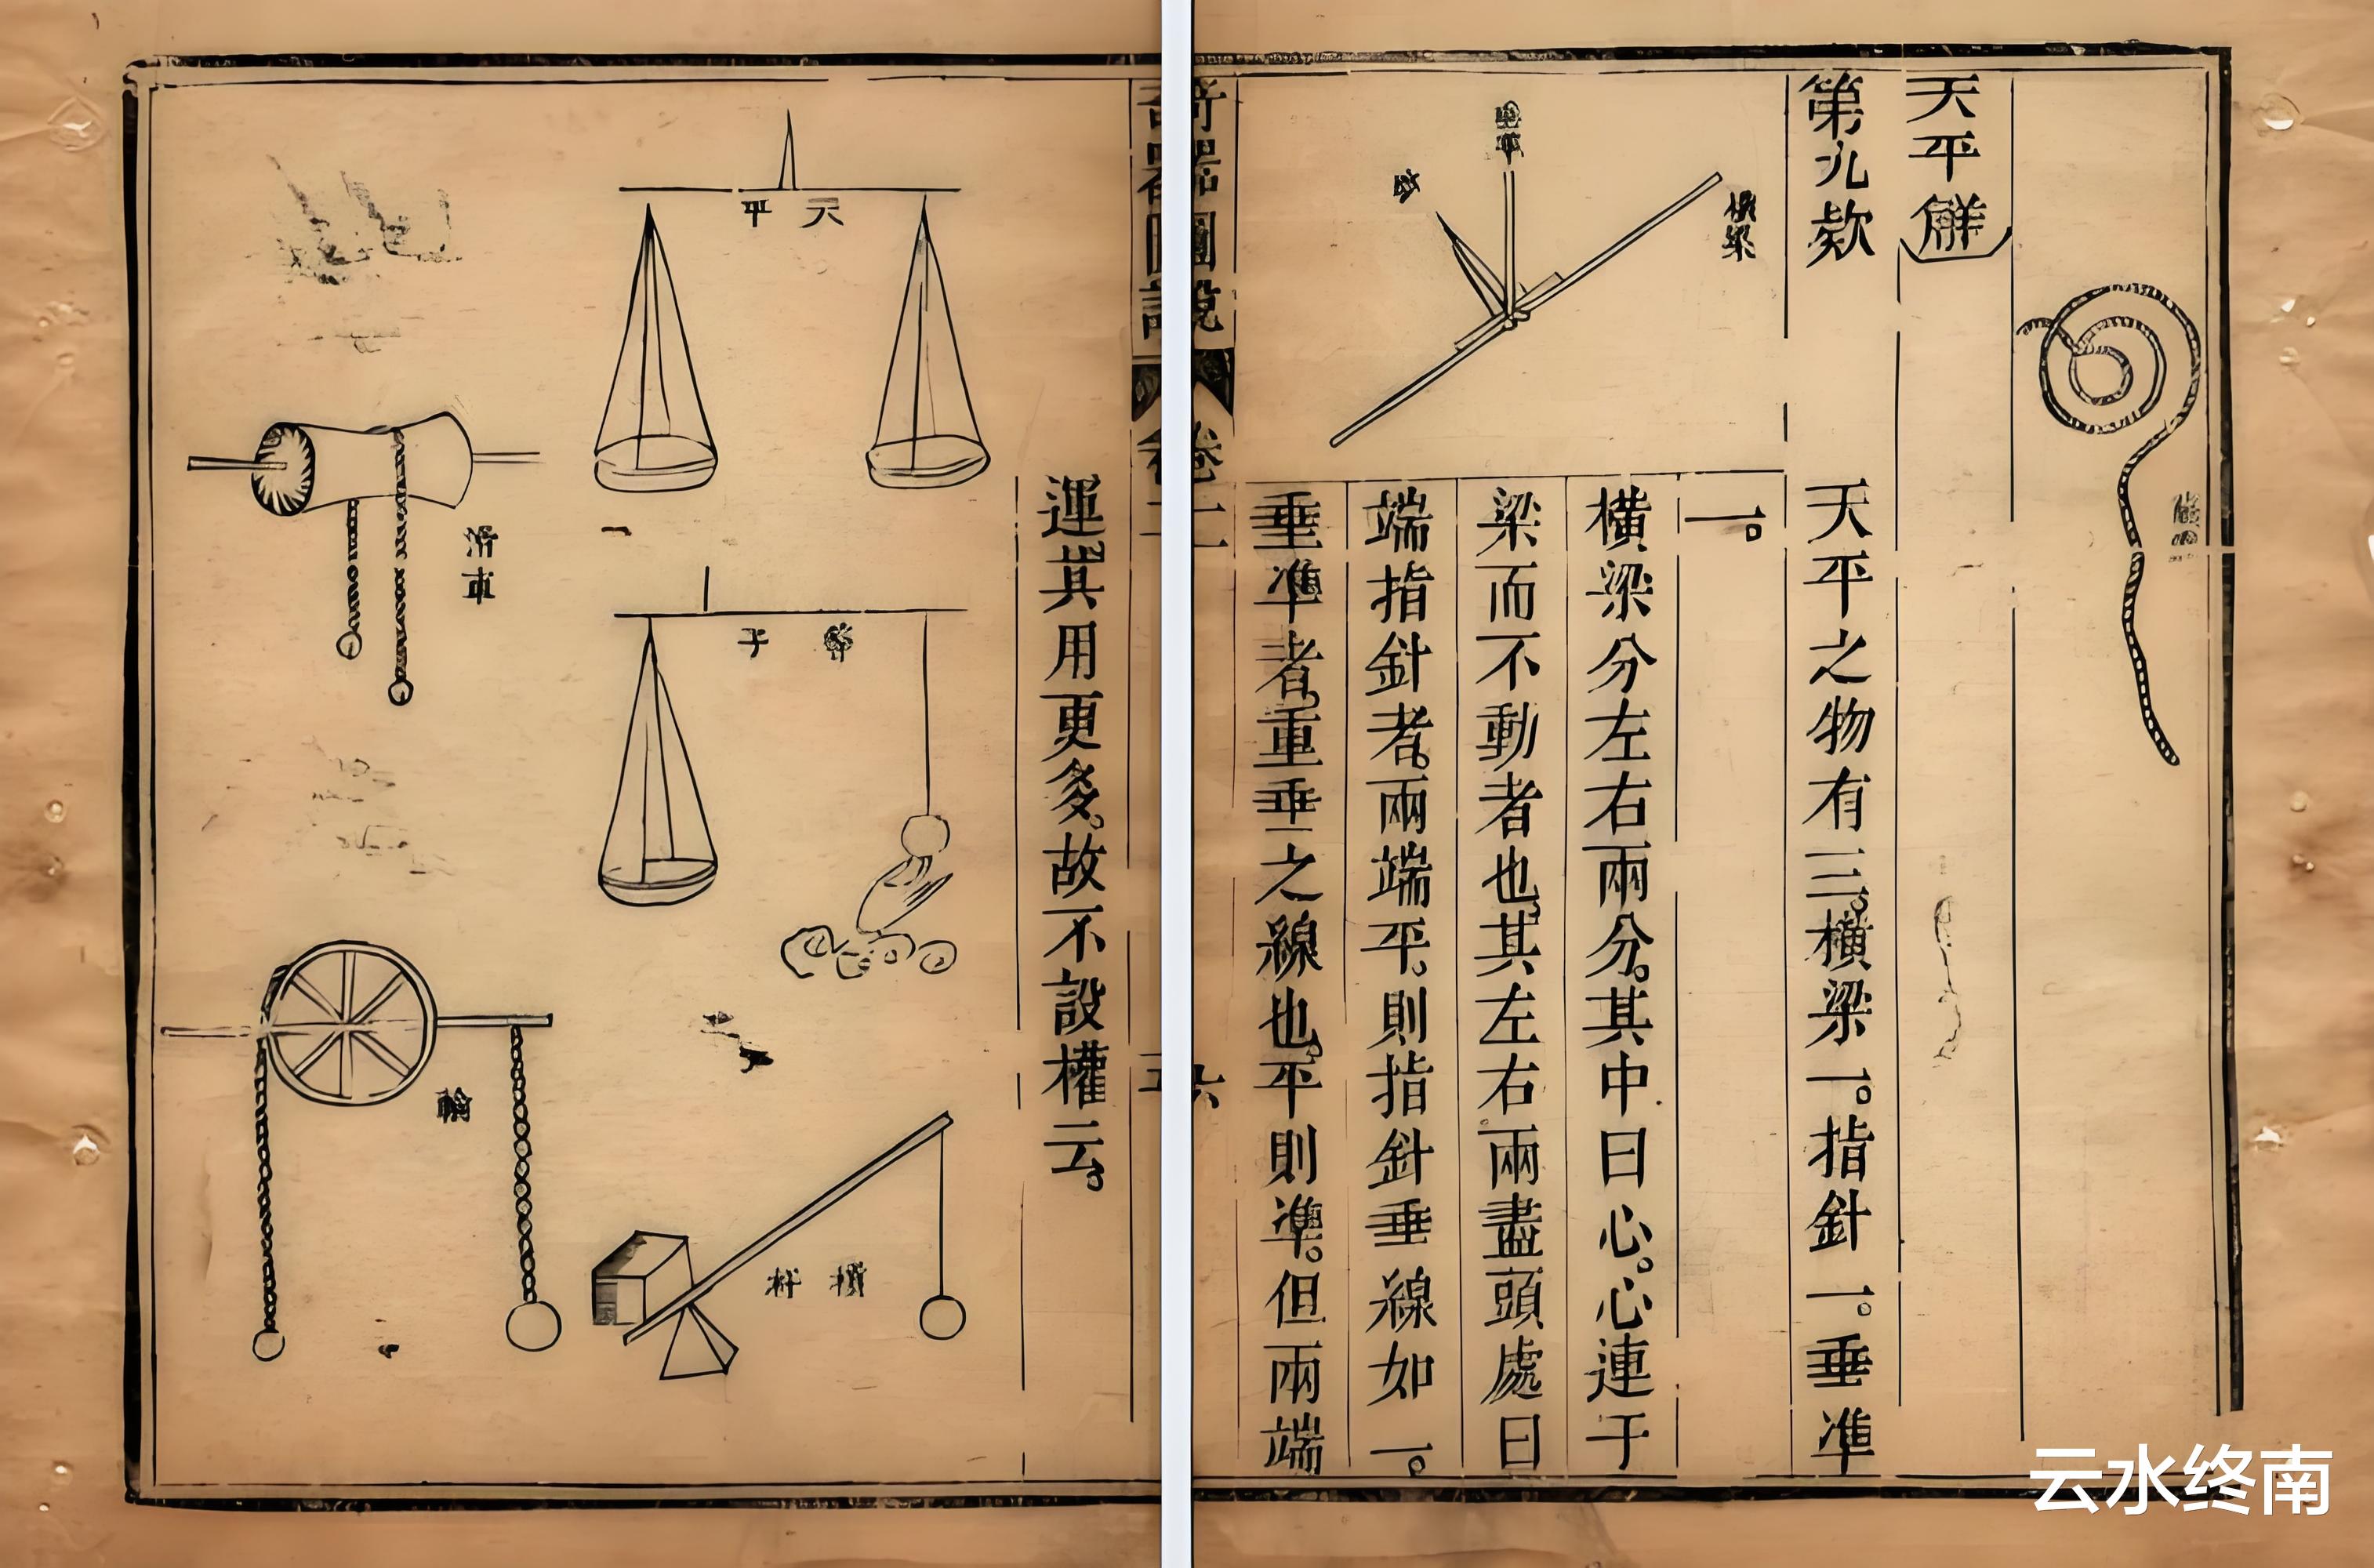 天平觧
第九欵
天平之物有三。橫梁一。指針一。垂準
一。
橫梁分左右兩分。其中曰心。心連于
梁而不動者也。其左右兩盡頭處曰
端指針者。兩端平。則指針垂線如一。
垂準者。重垂之線也。平則準。但兩端
橫梁
奇器圖說
卷
六
運其用更多。故不設權云。
天平
等子
槓杆
滑車
輪
云水终南